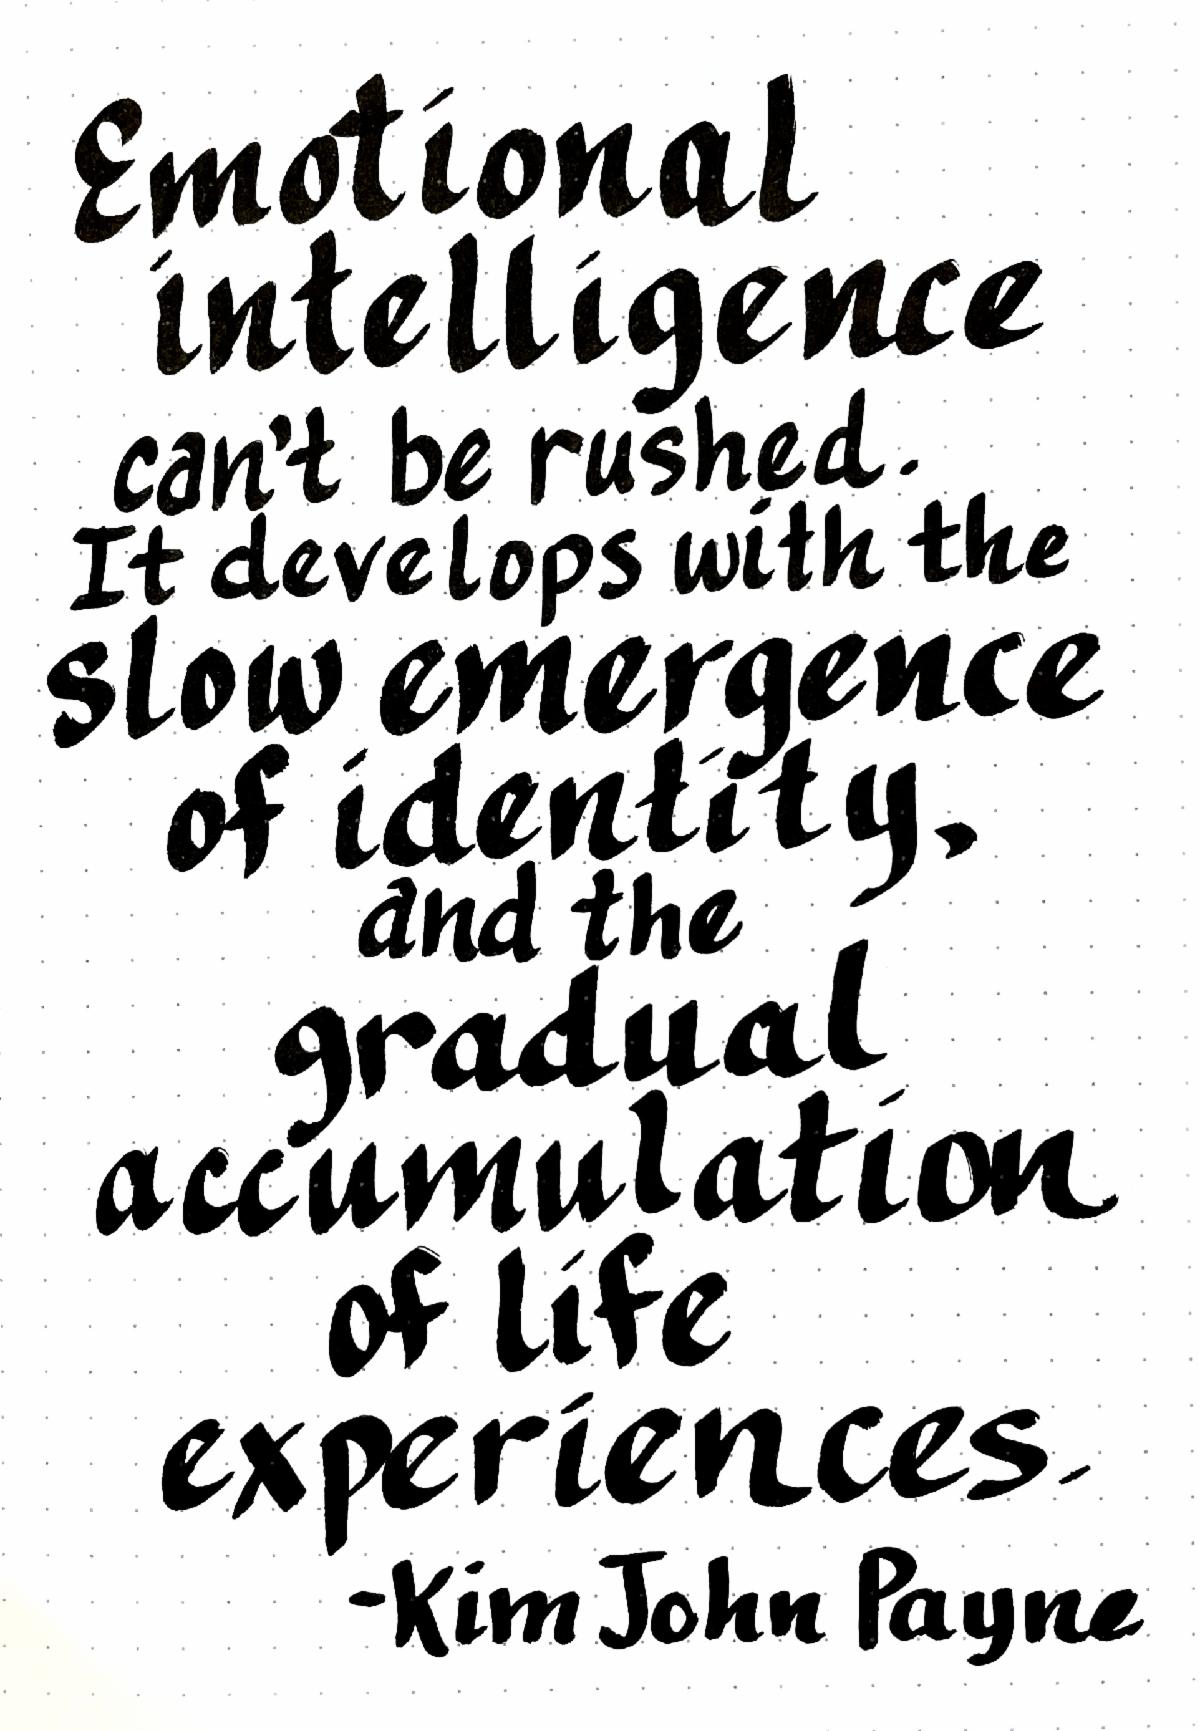 Emotional
intelligence
can't be rushed.
It develops with the
slow emergence
of identity,
and the
gradual
accumulation
of life
experiences.
-Kim John Payne